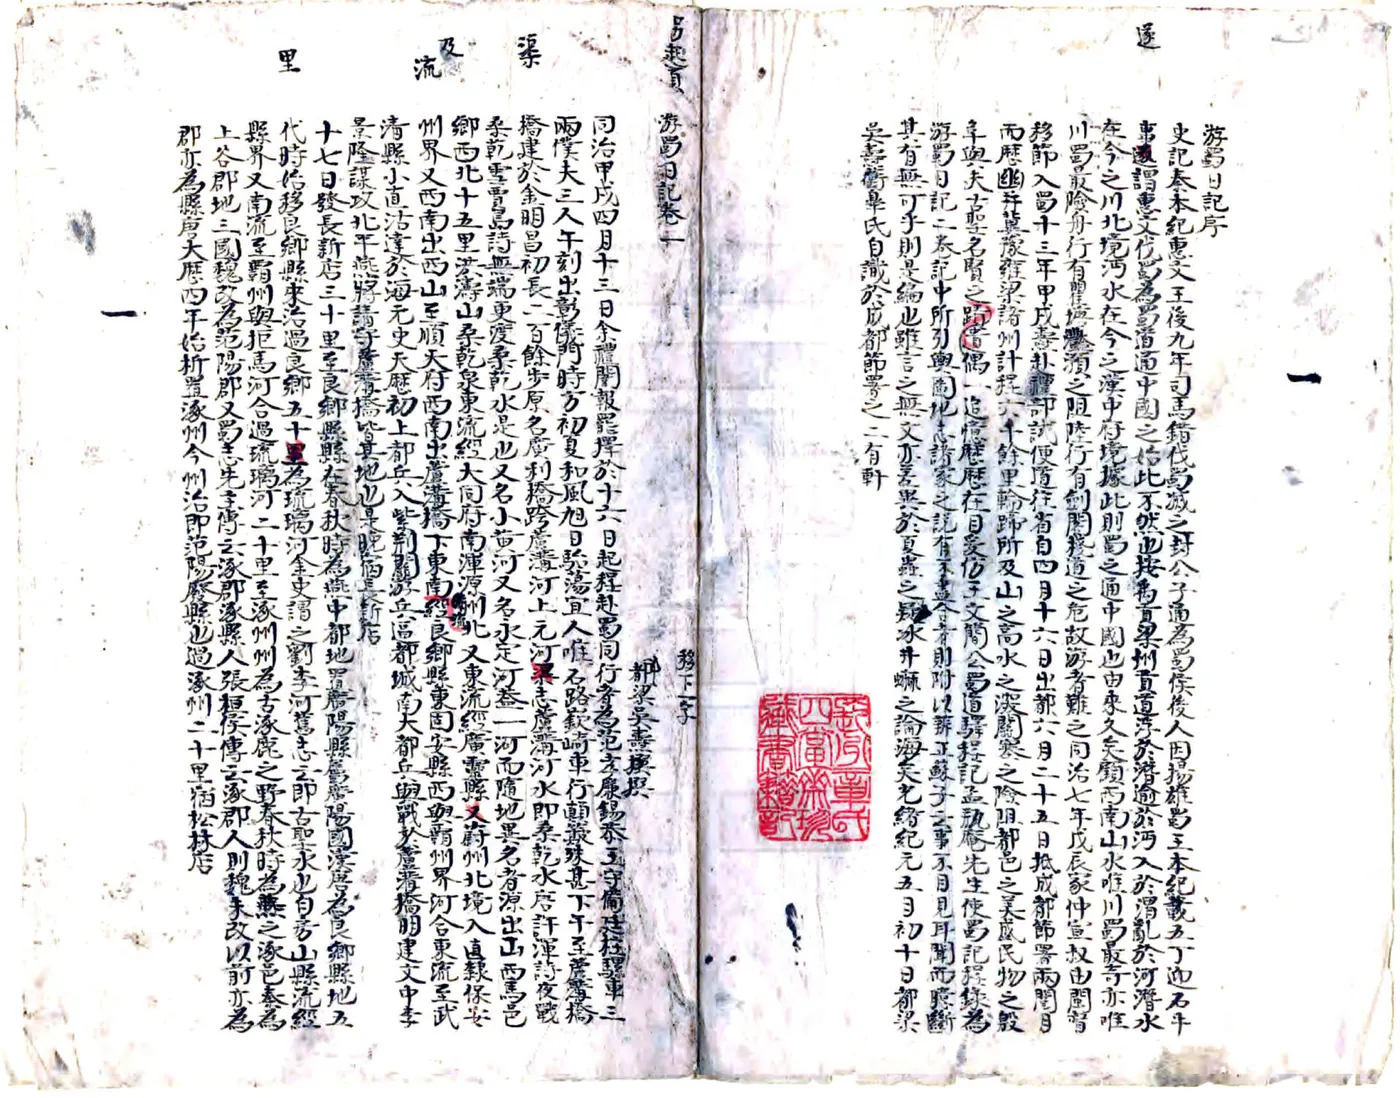 遂
游蜀日記序
史記秦本紀惠文王後九年司馬錯伐蜀滅之封公子通為蜀侯後人因揚雄蜀王本紀載五丁迎石牛
事遂謂惠文伐蜀為蜀道通中國之始此不然也按禹貢梁州貢道浮於潛逾於沔入於渭亂於河潛水
在今之川北境沔水在今之漢中府境據此則蜀之通中國也由來久矣顧西南山水唯川蜀最奇亦唯
川蜀最險舟行有瞿塘灩澦之阻陸行有劍閣棧道之危故游者難之同治七年戊辰家仲宣叔由閩督
移節入蜀十三年甲戌壽赴禮部試便道往省自四月十六日出都六月二十五日抵成都節署兩閱月
而歷幽并冀豫雍梁諸州計程六千餘里輪蹄所及山之高水之深關寨之險阻都邑之美盛民物之殷
阜與夫古聖名賢之蹟皆偶一追憶歷歷在目爰仿王文簡公蜀道驛程記孟瓶庵先生使蜀記程錄為
游蜀日記二卷記中所引輿圖地志諸家之說有不盡合者則附以辨正蘇子云事不目見耳聞而臆斷
其有無可乎則是編也雖言之無文亦差異於夏蟲之疑冰井蠅之論海矣光緒紀元五月初十日都梁
吳壽蘅皐氏自識於成都節署之二有軒
一
另起頁
游蜀日記卷一
移下一字
都梁吳壽撰
同治甲戌四月十三日余禮闈報罷擇於十六日起程赴蜀同行者為范彥廉錫恭王守備廷柱騾車三
兩僕夫三人午刻出彰儀門時方初夏和風旭日駘蕩宜人唯石路嶔崎車行顛簸殊甚下午至蘆溝橋
橋建於金明昌初長二百餘步原名廣利橋跨蘆溝河上元河渠志蘆溝河水即桑乾水唐許渾詩夜戰
桑乾雪賈島詩無端更渡桑乾水是也又名小黃河又名永定河蓋一河而隨地異名者源出山西馬邑
鄉西北十五里洪濤山桑乾泉東流經大同府南渾源州北又東流經廣靈縣及蔚州北境入直隸保安
州界又西南出西山至順天府西南出蘆溝橋下東南流經良鄉縣東固安縣西與霸州界河合東流至武
清縣小直沽達於海元史天歷初上都兵入紫荊關游兵逼都城南大都兵與戰於蘆溝橋明建文中李
景隆謀攻北平燕將請守蘆溝橋皆其地也是晚宿長新店
十七日發長新店三十里至良鄉縣縣在春秋時為燕中都地置廣陽縣屬廣陽國漢唐為良鄉縣地五
代時始移良鄉縣來治過良鄉五十里為琉璃河金史謂之劉李河舊志云即古聖水也自房山縣流經
縣界又南流至霸州與拒馬河合過琉璃河二十里至涿州州為古涿鹿之野春秋時為燕之涿邑秦為
上谷郡地三國魏改為范陽郡又蜀志先主傳云涿郡涿縣人張桓侯傳云涿郡人則魏未改以前亦為
郡亦為縣唐大歷四年始析置涿州今州治即范陽廢縣也過涿州二十里宿松林店
渠
及
流
里
一